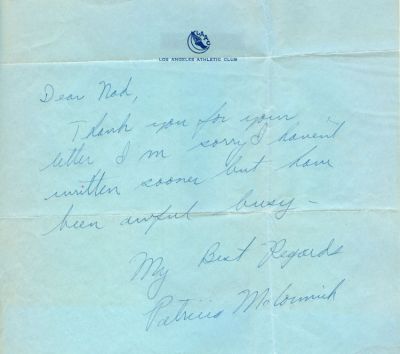 LAAC
LOS ANGELES ATHLETIC CLUB
Dear Nad,
Thank you for your
letter I'm sorry I haven't
written sooner but have
been awful busy -
My Best Regards
Patricia McCormick